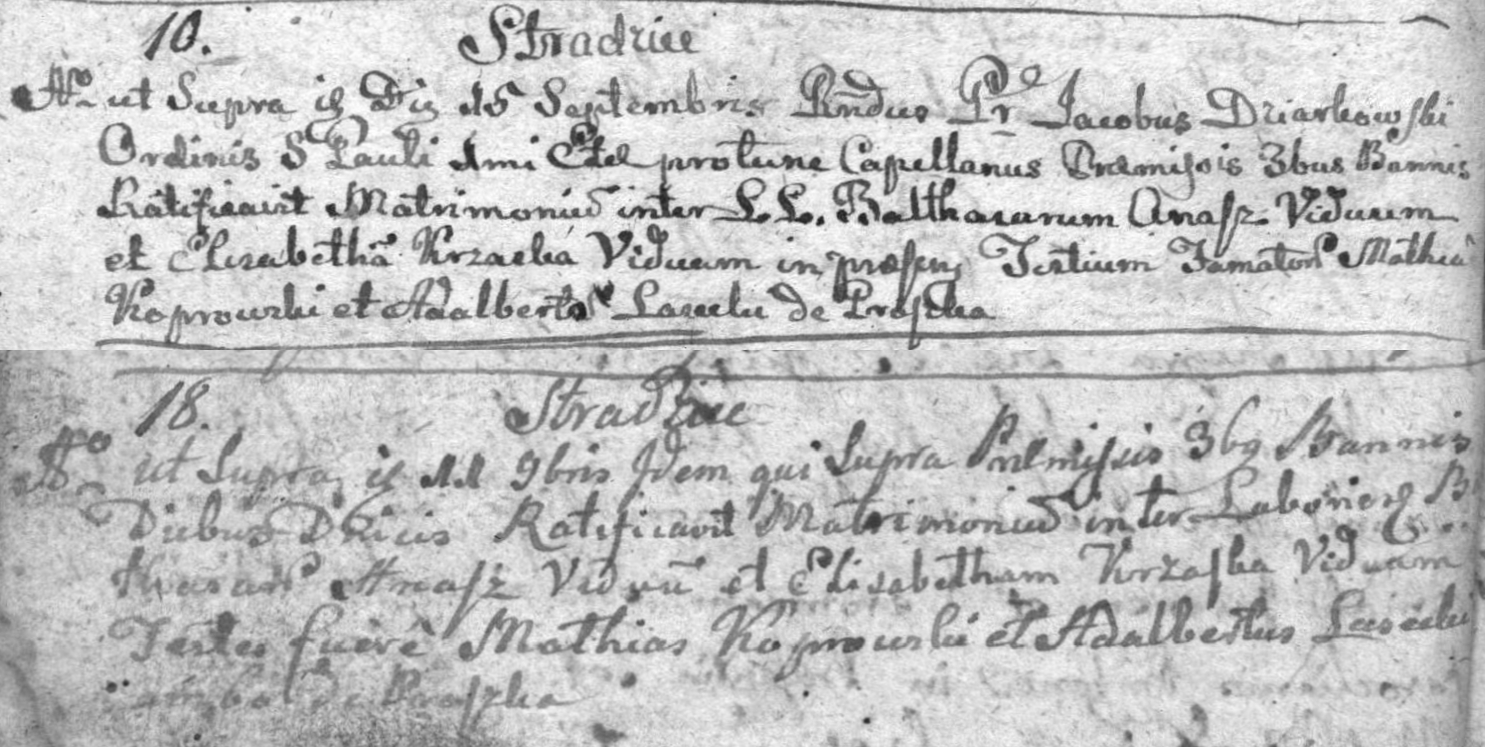 10. Stradzie
Ao ut Supra is Die 15 Septembris Rndus Pr Jacobus Dziarkowski
Ordinis S Pauli 1mi protunc Capellanus Premissis 3bus Bannis
Ratificavit Matrimoniu inter L. L. Balthasarum Anasz Viduum
et Elisabetha Krzaska Viduam in Testium Mathia
Koprowski et Adalberto de Proszka
18. Stradzie
Ao ut Supra is 11 9bris Idem qui Supra Premissis 3bg Bannis
Diebus Ratificavit Matrimoniu inter B
Anasz Viduu et Elisabetham Krzaska Viduam
Testes fuere Mathias Koprowski et Adalbertus
de Proszka